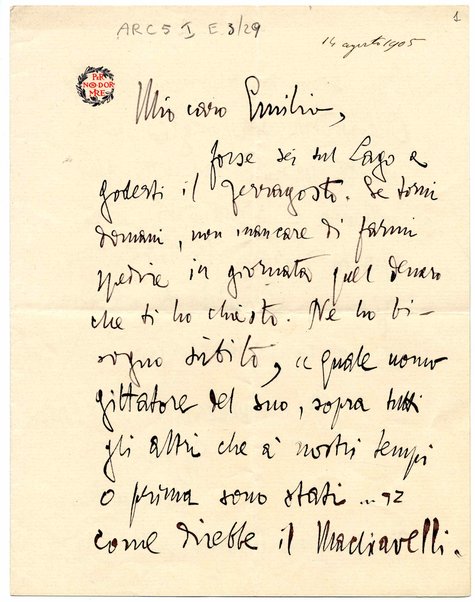 ARC 5 I E 3/29
1
14 agosto 1905
PER
NON DOR
MIRE
Mio caro Emilio,
forse sei sul Lago a
goderti il ferragosto. Se torni
domani, non mancare di farmi
spedire in giornata quel denaro
che ti ho chiesto. Ne ho bi-
sogno sùbito, "quale uomo
gittatore del suo, sopra tutti
gli altri che a' nostri tempi
o prima sono stati ..."
come direbbe il Machiavelli.